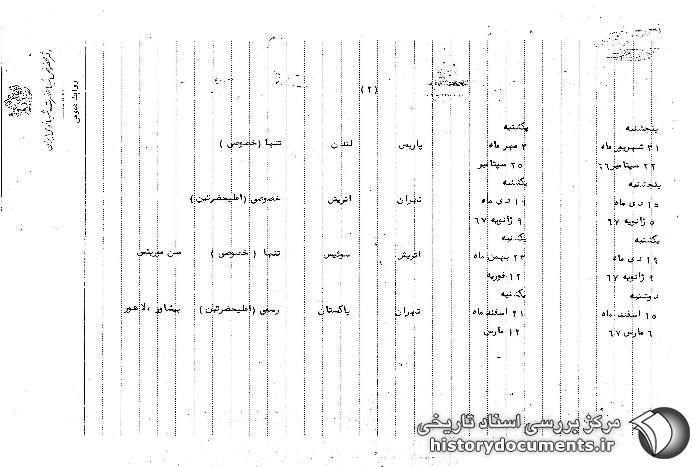 دفتر مخصوص علیاحضرت شهبانوی ایران
روابط عمومی
(۲)
پنجشنبه یکشنبه
۳۱ شهریور ماه ۳ مهر ماه پاریس لندن تنها (خصوصی)
۲۲ سپتامبر ۶۶ ۲۵ سپتامبر
پنجشنبه یکشنبه
۱۵ دی ماه ۱۹ دی ماه تهران اتریش خصوصی (اعلیحضرتین)
۵ ژانویه ۶۷ ۹ ژانویه ۶۷
یکشنبه یکشنبه
۱۹ دی ماه ۲۳ بهمن ماه اتریش سوئیس تنها (خصوصی) سن موریتس
۹ ژانویه ۶۷ ۱۲ فوریه
دوشنبه یکشنبه
۱۵ اسفند ماه ۲۱ اسفند ماه تهران پاکستان رسمی (اعلیحضرتین) پیشاور، لاهور
۶ مارس ۶۷ ۱۲ مارس
مرکز بررسی اسناد تاریخی
historydocuments.ir